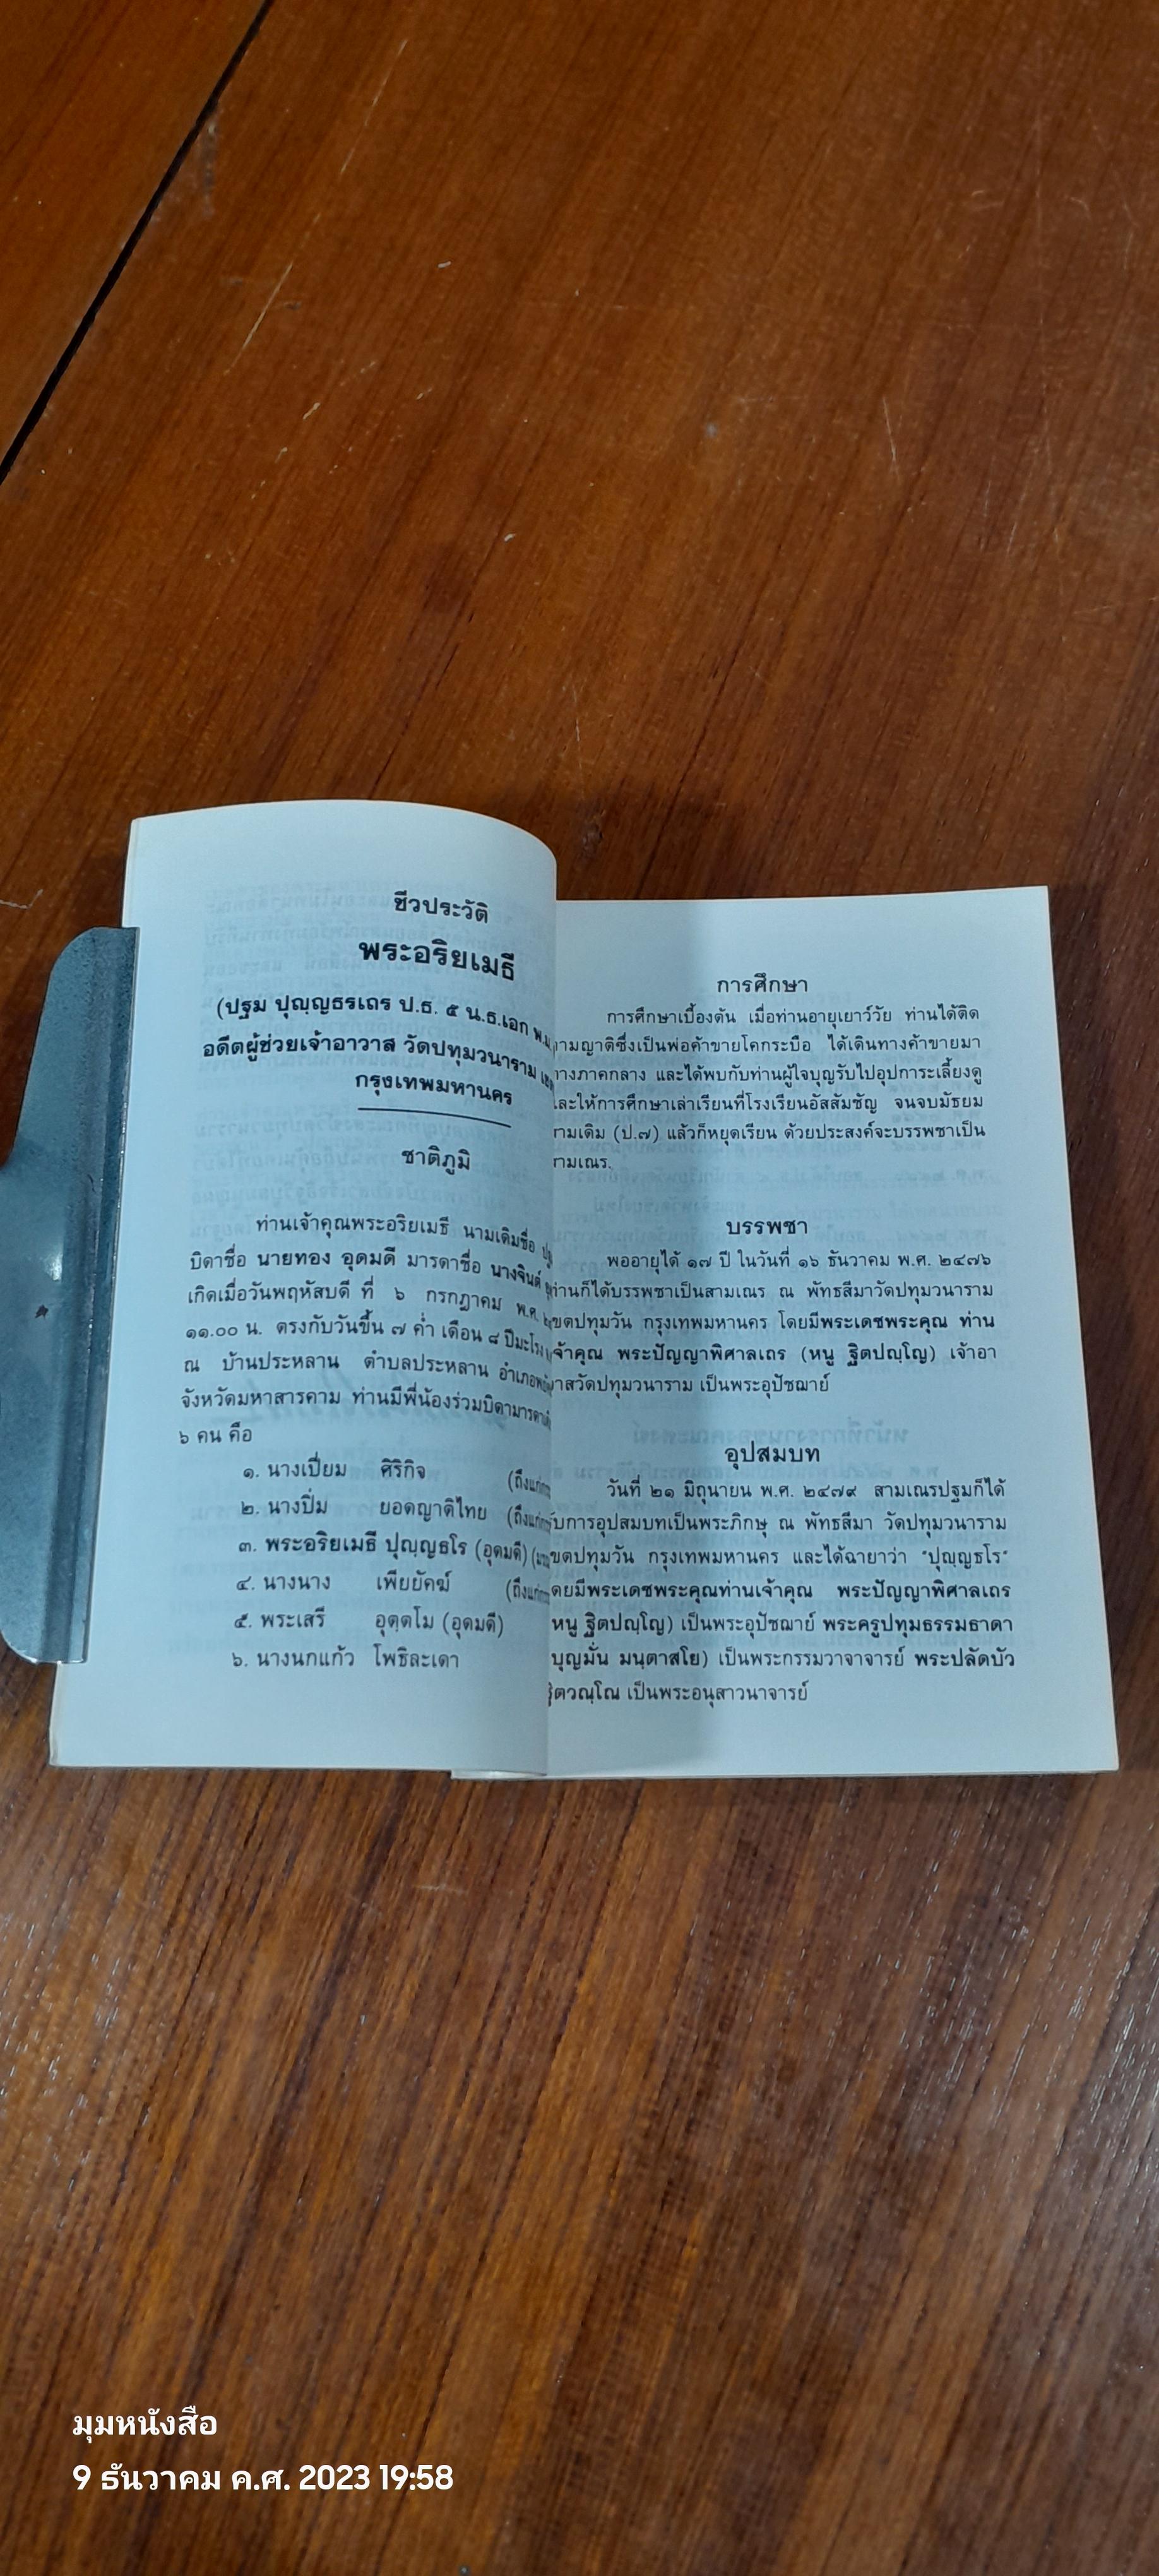 ชีวประวัติ
พระอริยเมธี
(ปฐม ปุญฺญธรเถร ป.ธ. ๕ น.ธ.เอก
อดีตผู้ช่วยเจ้าอาวาส วัดปทุมวนาราม
กรุงเทพมหานคร
ชาติภูมิ
ท่านเจ้าคุณพระอริยเมธี นามเดิมชื่อ
บิดาชื่อ นายทอง อุดมดี มารดาชื่อ นางจินต์
เกิดเมื่อวันพฤหัสบดี ที่ ๖ กรกฎาคม พ.ศ.
๑๑.๐๐ น. ตรงกับวันขึ้น ๗ ค่ำ เดือน ๘ ปีมะโรง
ณ บ้านประหลาน ตำบลประหลาน อำเภอ
จังหวัดมหาสารคาม ท่านมีพี่น้องร่วมบิดามารดา
๖ คน คือ
๑. นางเปี่ยม ศิริกิจ
๒. นางปิ่ม ยอดญาติไทย
๓. พระอริยเมธี ปุญฺญธโร (อุดมดี)
๔. นางนาง เพียยัคฆ์
๕. พระเสรี อุตฺตโม (อุดมดี)
๖. นางนกแก้ว โพธิละเดา
การศึกษา
การศึกษาเบื้องต้น เมื่อท่านอายุเยาว์วัย ท่านได้ติด
ตามญาติซึ่งเป็นพ่อค้าขายโคกระบือ ได้เดินทางค้าขายมา
ทางภาคกลาง และได้พบกับท่านผู้ใจบุญรับไปอุปการะเลี้ยงดู
และให้การศึกษาเล่าเรียนที่โรงเรียนอัสสัมชัญ จนจบมัธยม
สามเดิม (ป.๗) แล้วก็หยุดเรียน ด้วยประสงค์จะบรรพชาเป็น
สามเณร
บรรพชา
พออายุได้ ๑๗ ปี ในวันที่ ๑๖ ธันวาคม พ.ศ. ๒๔๗๖
ท่านก็ได้บรรพชาเป็นสามเณร ณ พัทธสีมาวัดปทุมวนาราม
เขตปทุมวัน กรุงเทพมหานคร โดยมีพระเดชพระคุณ ท่าน
เจ้าคุณ พระปัญญาพิศาลเถร (หนู ฐิตปญฺโญ) เจ้าอา
วาสวัดปทุมวนาราม เป็นพระอุปัชฌาย์
อุปสมบท
วันที่ ๒๑ มิถุนายน พ.ศ. ๒๔๗๙ สามเณรปฐมก็ได้
รับการอุปสมบทเป็นพระภิกษุ ณ พัทธสีมา วัดปทุมวนาราม
เขตปทุมวัน กรุงเทพมหานคร และได้ฉายาว่า "ปุญฺญธโร"
โดยมีพระเดชพระคุณท่านเจ้าคุณ พระปัญญาพิศาลเถร
(หนู ฐิตปญฺโญ) เป็นพระอุปัชฌาย์ พระครูปทุมธรรมธาดา
(บุญมั่น มนฺตาสโย) เป็นพระกรรมวาจาจารย์ พระปลัดบัว
ฐิตวณฺโณ เป็นพระอนุสาวนาจารย์
มุมหนังสือ
9 ธันวาคม ค.ศ. 2023 19:58